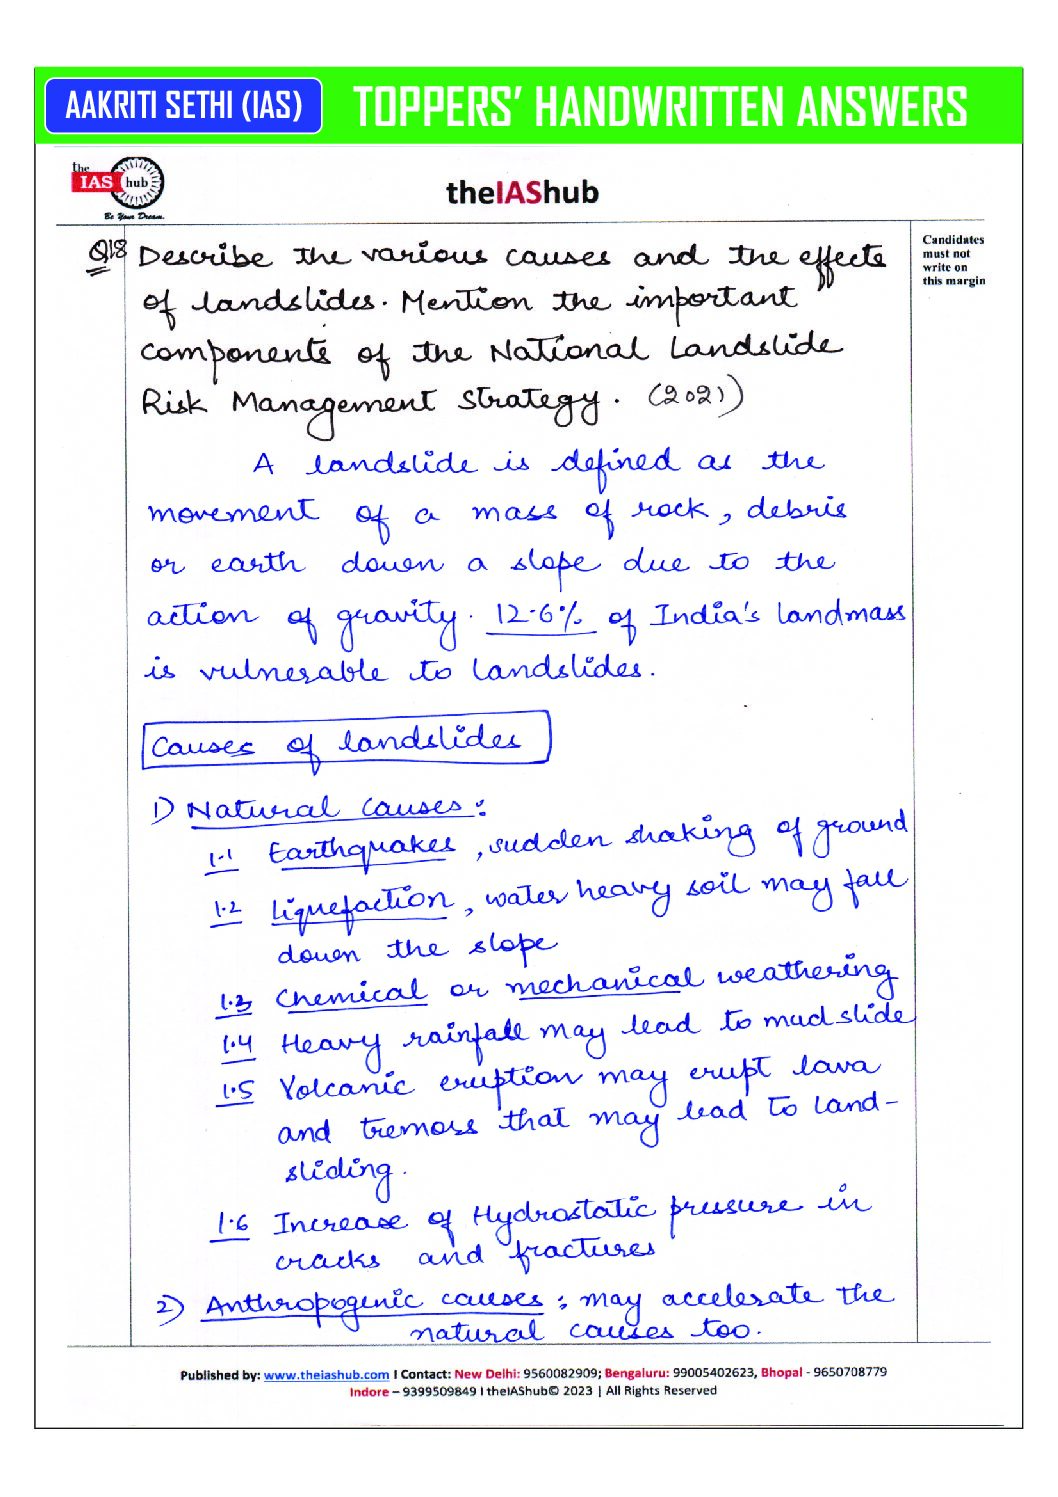 AAKRITI SETHI (IAS)
TOPPERS' HANDWRITTEN ANSWERS
the
IAS hub
Be Your Dream.
theIAShub
Candidates
must not
write on
this margin
Q18 Describe the various causes and the effects
of landslides. Mention the important
components of the National Landslide
Risk Management Strategy. (2021)
A landslide is defined as the
movement of a mass of rock, debris
or earth down a slope due to the
action of gravity. 12.6% of India's landmass
is vulnerable to landslides.
Causes of landslides
1) Natural causes:
1.1 Earthquakes, sudden shaking of ground
1.2 Liquefaction, water heavy soil may fall
down the slope
1.3 Chemical or mechanical weathering
1.4 Heavy rainfall may lead to mudslide
1.5 Volcanic eruption may erupt lava
and tremors that may lead to land-
sliding.
1.6 Increase of Hydrostatic pressure in
cracks and fractures
2) Anthropogenic causes: may accelerate the
natural causes too.
Published by: www.theiashub.com I Contact: New Delhi: 9560082909; Bengaluru: 99005402623, Bhopal - 9650708779
Indore – 9399509849 I theIAShub© 2023 | All Rights Reserved